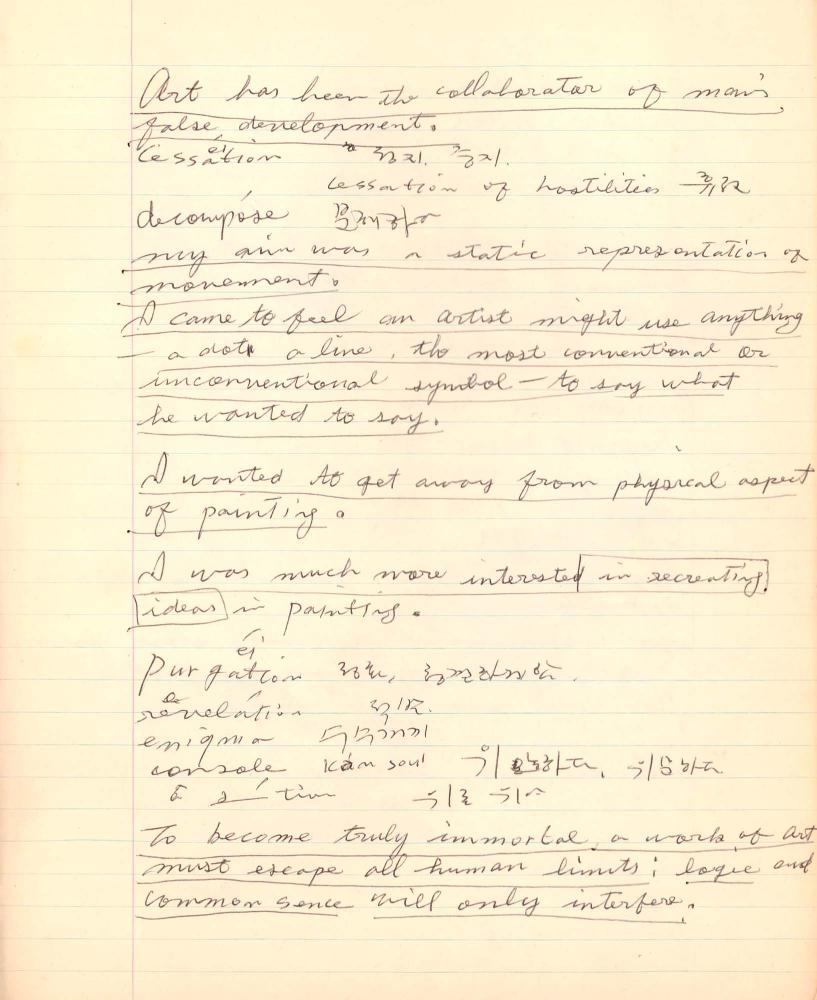 Art has been the collaborator of man's
false development.
Cessation 정지. 중지.
cessation of hostilities 휴전
decompose 분해하다
my aim was a static representation of
movement.
I came to feel an artist might use anything
— a dot, a line, the most conventional or
unconventional symbol — to say what
he wanted to say.
I wanted to get away from physical aspect
of painting.
I was much more interested in recreating
ideas in painting.
ei
purgation 정화,
revelation
enigma 수수께끼
console kən soul 위안하다, 위로하다
To become truly immortal, a work of art
must escape all human limits; logic and
common sence will only interfere.